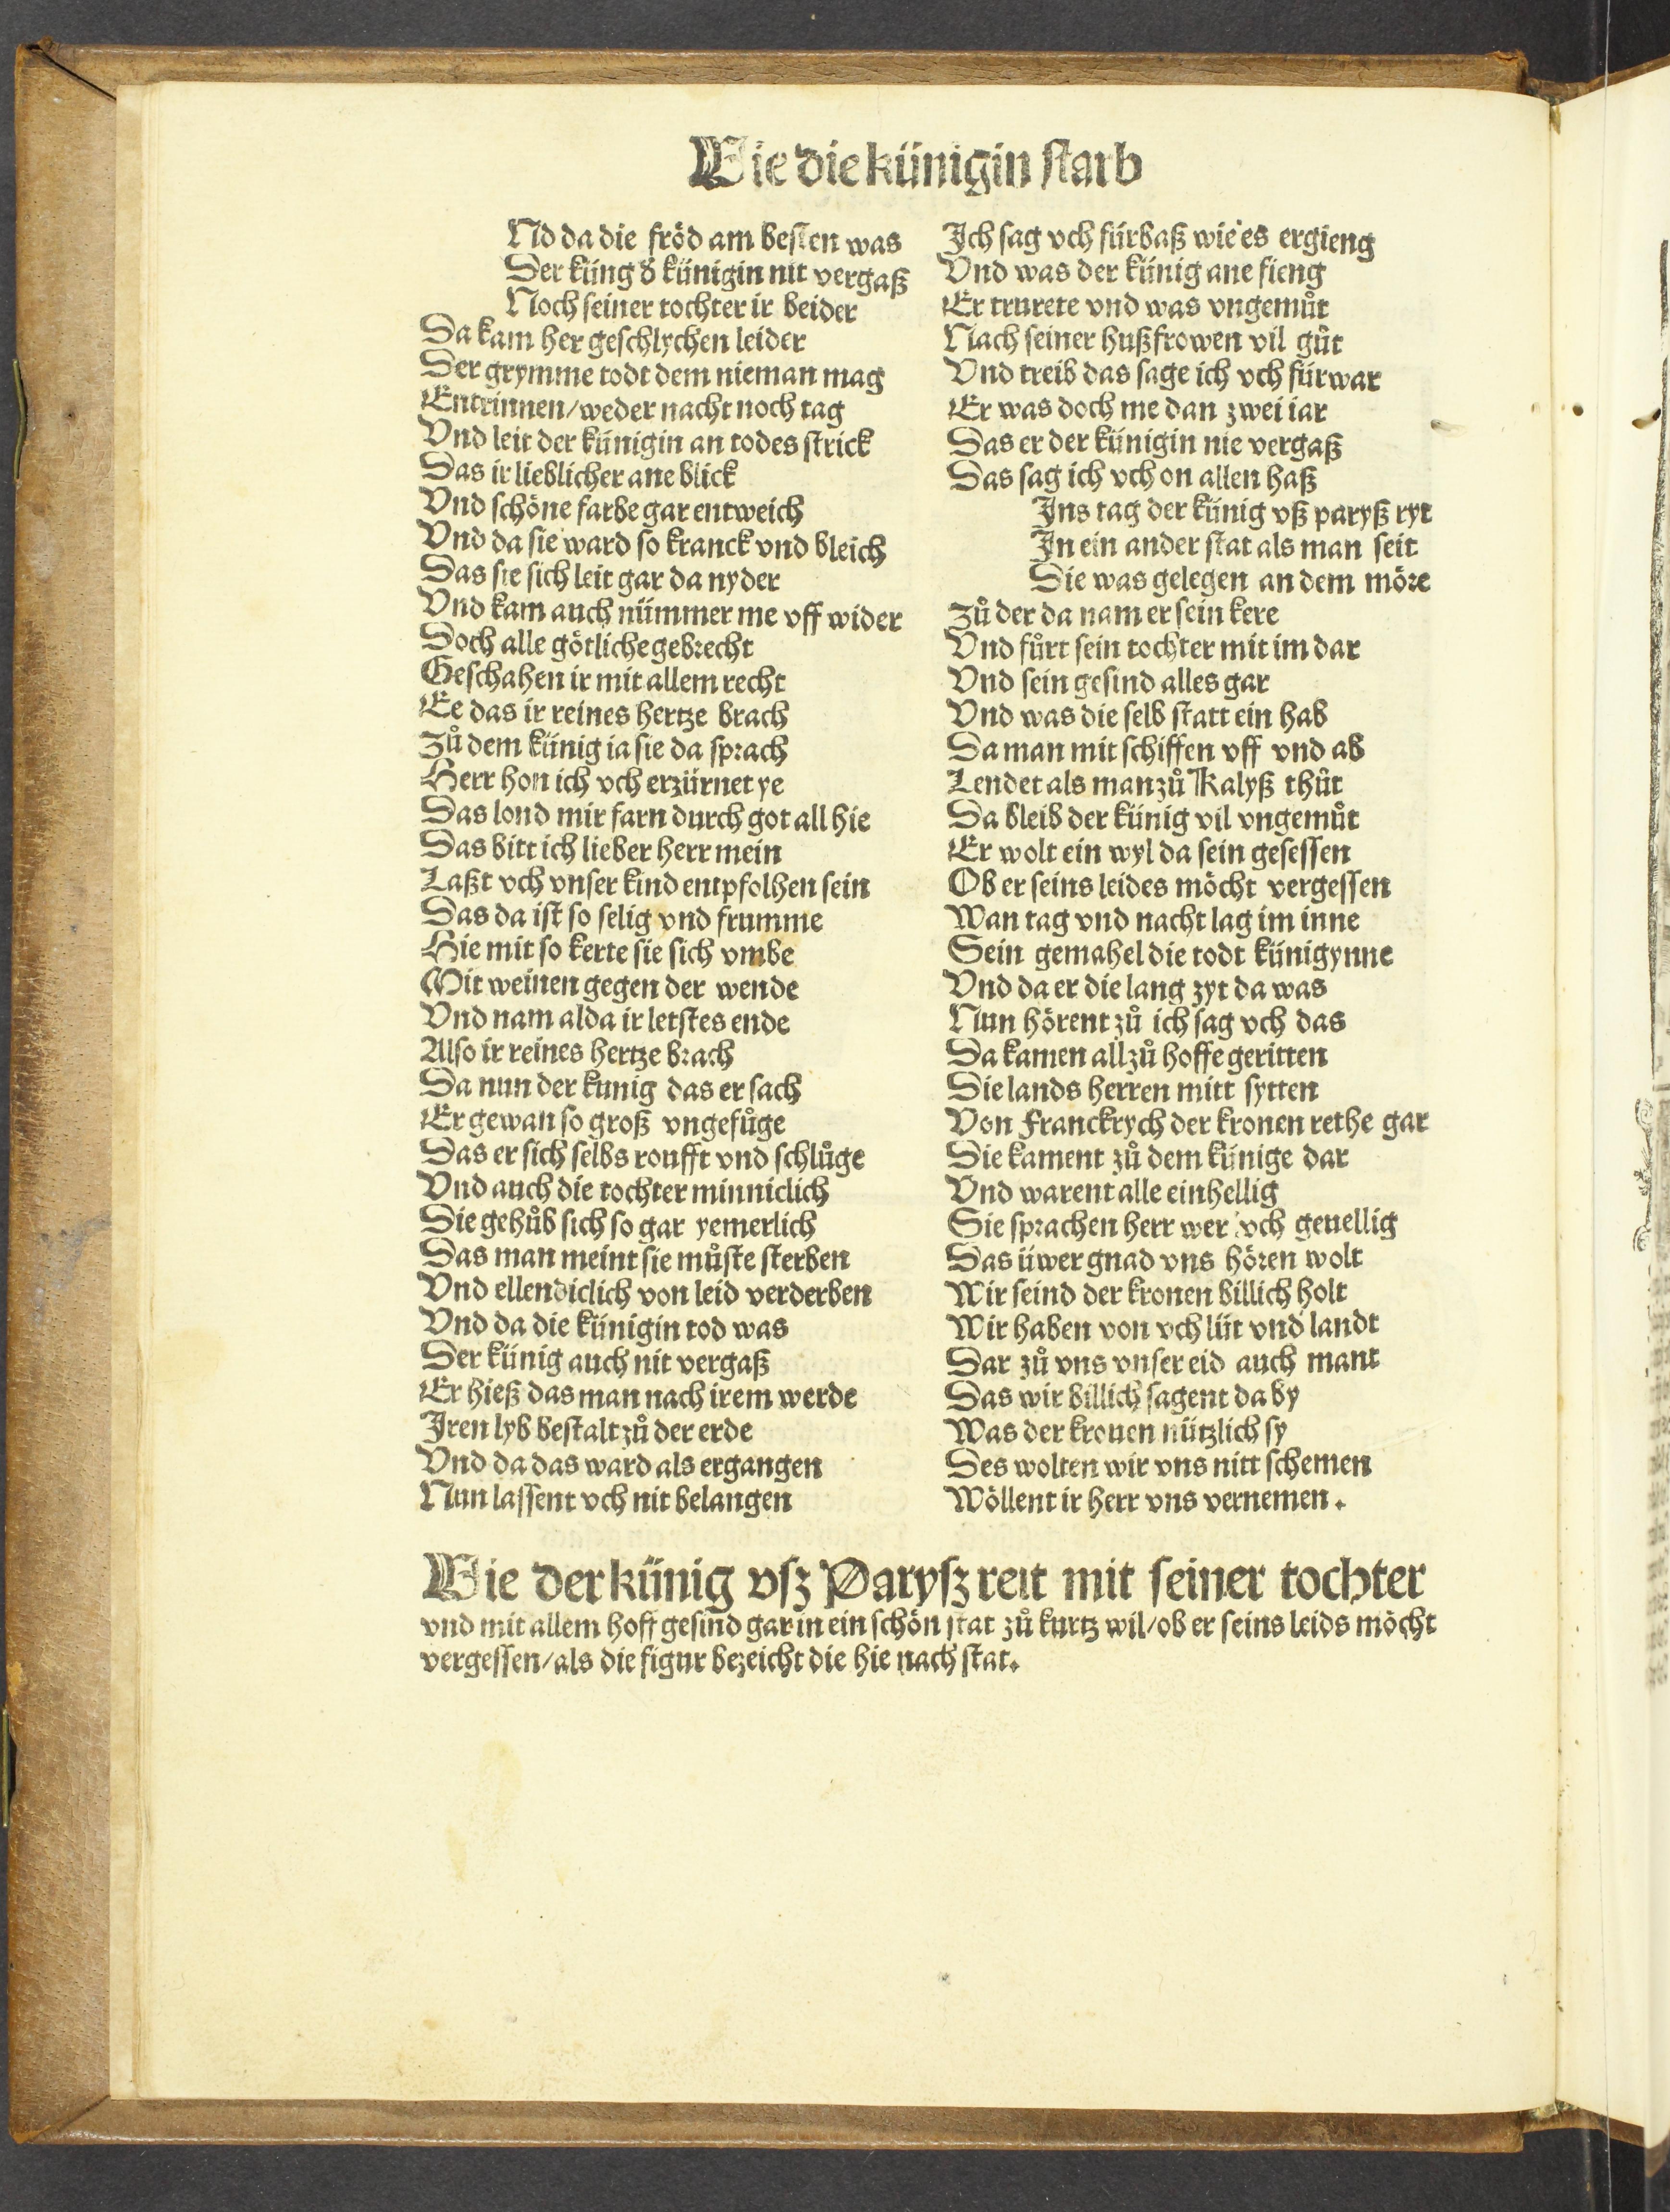 Wie die künigin starb
Nd da die fröd am besten was
Der küng d̕ künigin nit vergaß
Noch seiner tochter ir beider
Da kam her geschlychen leider
Der grymme todt dem nieman mag
Entrinnen/weder nacht noch tag
Vnd leit der künigin an todes strick
Das ir lieblicher ane blick
Vnd schöne farbe gar entweich
Vnd da sie ward so kranck vnd bleich
Das sie sich leit gar da nyder
Vnd kam auch nümmer me vff wider
Doch alle götliche gebrecht
Geschahen ir mit allem recht
Ee das ir reines hertze brach
Zů dem künig ia sie da sprach
Herr hon ich vch erzürnet ye
Das lond mir farn durch got all hie
Das bitt ich lieber herr mein
Laßt vch vnser kind entpfolhen sein
Das da ist so selig vnd frumme
Hie mit so kerte sie sich vmbe
Mit weinen gegen der wende
Vnd nam alda ir letstes ende
Also ir reines hertze brach
Da nun der kunig das er sach
Er gewan so groß vngefůge
Das er sich selbs roufft vnd schlůge
Vnd auch die tochter minniclich
Die gehůb sich so gar yemerlich
Das man meint sie můste sterben
Vnd ellendiclich von leid verderben
Vnd da die künigin tod was
Der künig auch nit vergaß
Er hieß das man nach irem werde
Iren lyb bestalt zů der erde
Vnd da das ward als ergangen
Nun lassent vch nit belangen
Ich sag vch fürbaß wie es ergieng
Vnd was der künig ane fieng
Er trurete vnd was vngemůt
Nach seiner hußfrowen vil gůt
Vnd treib das sage ich vch fürwar
Er was doch me dan zwei iar
Das er der künigin nie vergaß
Das sag ich vch on allen haß
Ins tag der künig vß paryß ryt
In ein ander stat als man seit
Die was gelegen an dem möre
Zů der da nam er sein kere
Vnd fůrt sein tochter mit im dar
Vnd sein gesind alles gar
Vnd was die selb statt ein hab
Da man mit schiffen vff vnd ab
Lendet als man zů Kalyß thůt
Da bleib der künig vil vngemůt
Er wolt ein wyl da sein gesessen
Ob er seins leides möcht vergessen
Wan tag vnd nacht lag im inne
Sein gemahel die todt künigynne
Vnd da er die lang zyt da was
Nun hörent zů ich sag vch das
Da kamen all zů hoffe geritten
Die lands herren mitt sytten
Von Franckrych der kronen rethe gar
Die kament zů dem künige dar
Vnd warent alle einhellig
Sie sprachen herr wer vch geuellig
Das üwer gnad vns hören wolt
Wir seind der kronen billich holt
Wir haben von vch lüt vnd landt
Dar zů vns vnser eid auch mant
Das wir billich sagent da by
Was der kronen nützlich sy
Des wolten wir vns nitt schemen
Wöllent ir herr vns vernemen.
Wie der künig vsz Parysz reit mit seiner tochter
vnd mit allem hoff gesind gar in ein schön stat zů kurtz wil/ob er seins leids möcht
vergessen/als die figur bezeicht die hie nach stat.